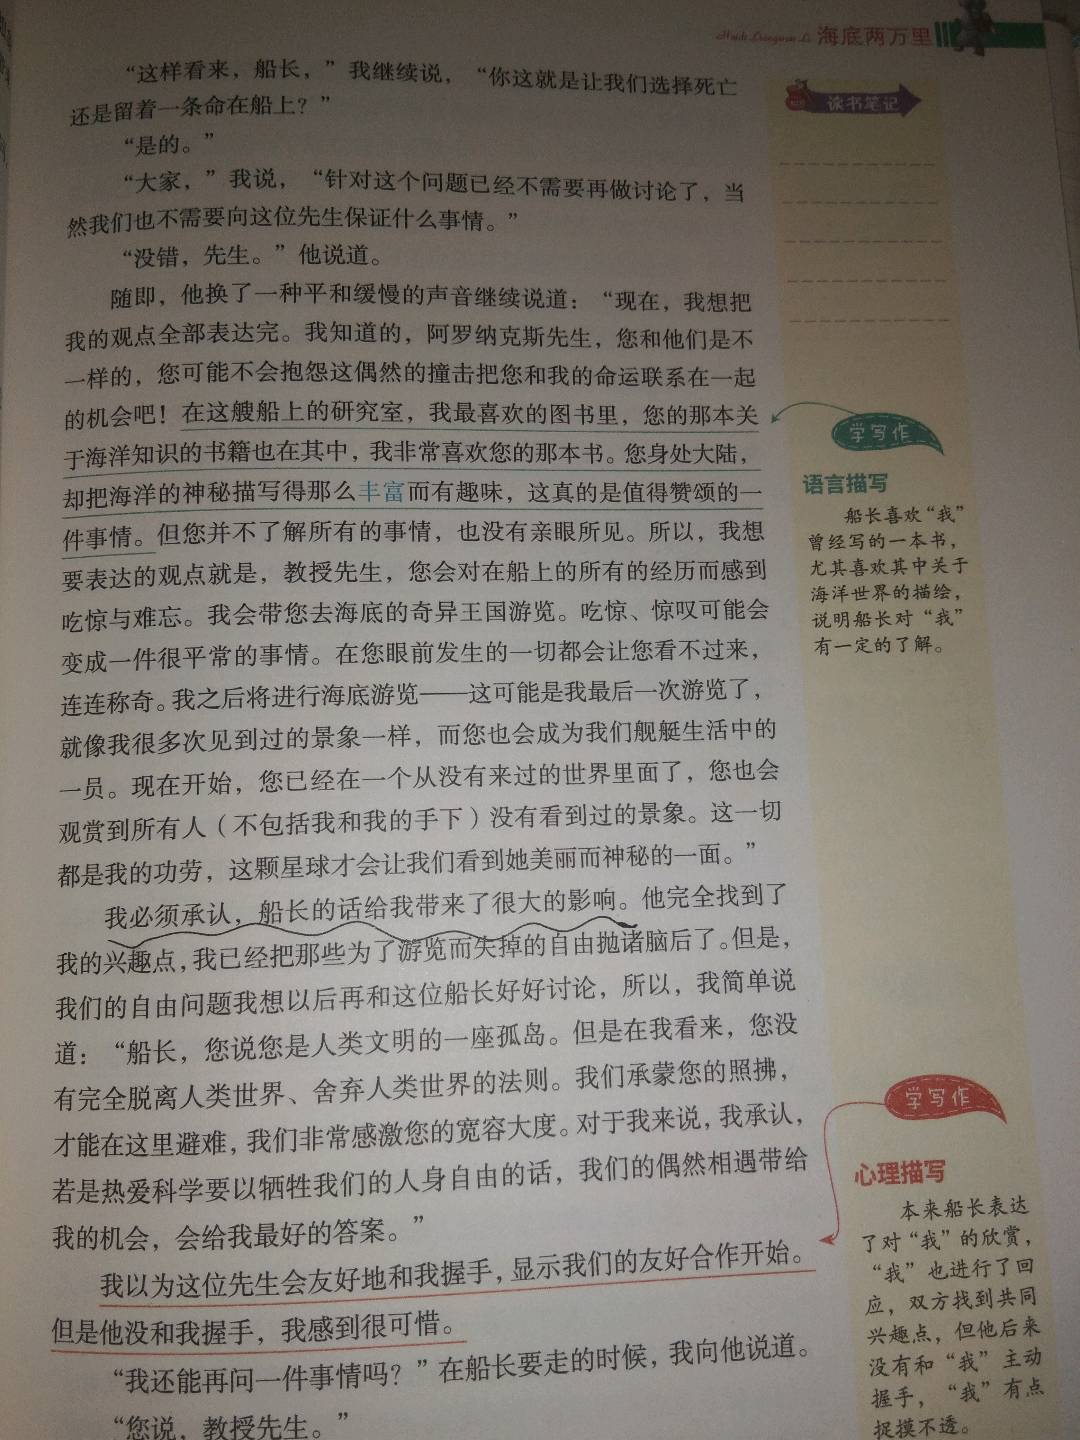 海底两万里
“这样看来，船长，”我继续说，“你这就是让我们选择死亡
还是留着一条命在船上？”
“是的。”
“大家，”我说，“针对这个问题已经不需要再做讨论了，当
然我们也不需要向这位先生保证什么事情。”
“没错，先生。”他说道。
随即，他换了一种平和缓慢的声音继续说道：“现在，我想把
我的观点全部表达完。我知道的，阿罗纳克斯先生，您和他们是不
一样的，您可能不会抱怨这偶然的撞击把您和我的命运联系在一起
的机会吧！在这艘船上的研究室，我最喜欢的图书里，您的那本关
于海洋知识的书籍也在其中，我非常喜欢您的那本书。您身处大陆，
却把海洋的神秘描写得那么丰富而有趣味，这真的是值得赞颂的一
件事情。但您并不了解所有的事情，也没有亲眼所见。所以，我想
要表达的观点就是，教授先生，您会对在船上的所有的经历而感到
吃惊与难忘。我会带您去海底的奇异王国游览。吃惊、惊叹可能会
变成一件很平常的事情。在您眼前发生的一切都会让您看不过来，
连连称奇。我之后将进行海底游览——这可能是我最后一次游览了，
就像我很多次见到过的景象一样，而您也会成为我们舰艇生活中的
一员。现在开始，您已经在一个从没有来过的世界里面了，您也会
观赏到所有人（不包括我和我的手下）没有看到过的景象。这一切
都是我的功劳，这颗星球才会让我们看到她美丽而神秘的一面。”
我必须承认，船长的话给我带来了很大的影响。他完全找到了
我的兴趣点，我已经把那些为了游览而失掉的自由抛诸脑后了。但是，
我们的自由问题我想以后再和这位船长好好讨论，所以，我简单说
道：“船长，您说您是人类文明的一座孤岛。但是在我看来，您没
有完全脱离人类世界、舍弃人类世界的法则。我们承蒙您的照拂，
才能在这里避难，我们非常感激您的宽容大度。对于我来说，我承认，
若是热爱科学要以牺牲我们的人身自由的话，我们的偶然相遇带给
我的机会，会给我最好的答案。”
我以为这位先生会友好地和我握手，显示我们的友好合作开始。
但是他没和我握手，我感到很可惜。
“我还能再问一件事情吗？”在船长要走的时候，我向他说道。
“您说，教授先生。”
读书笔记
学写作
语言描写
船长喜欢“我”
曾经写的一本书，
尤其喜欢其中关于
海洋世界的描绘，
说明船长对“我”
有一定的了解。
学写作
心理描写
本来船长表达
了对“我”的欣赏，
“我”也进行了回
应，双方找到共同
兴趣点，但他后来
没有和“我”主动
握手，“我”有点
捉摸不透。